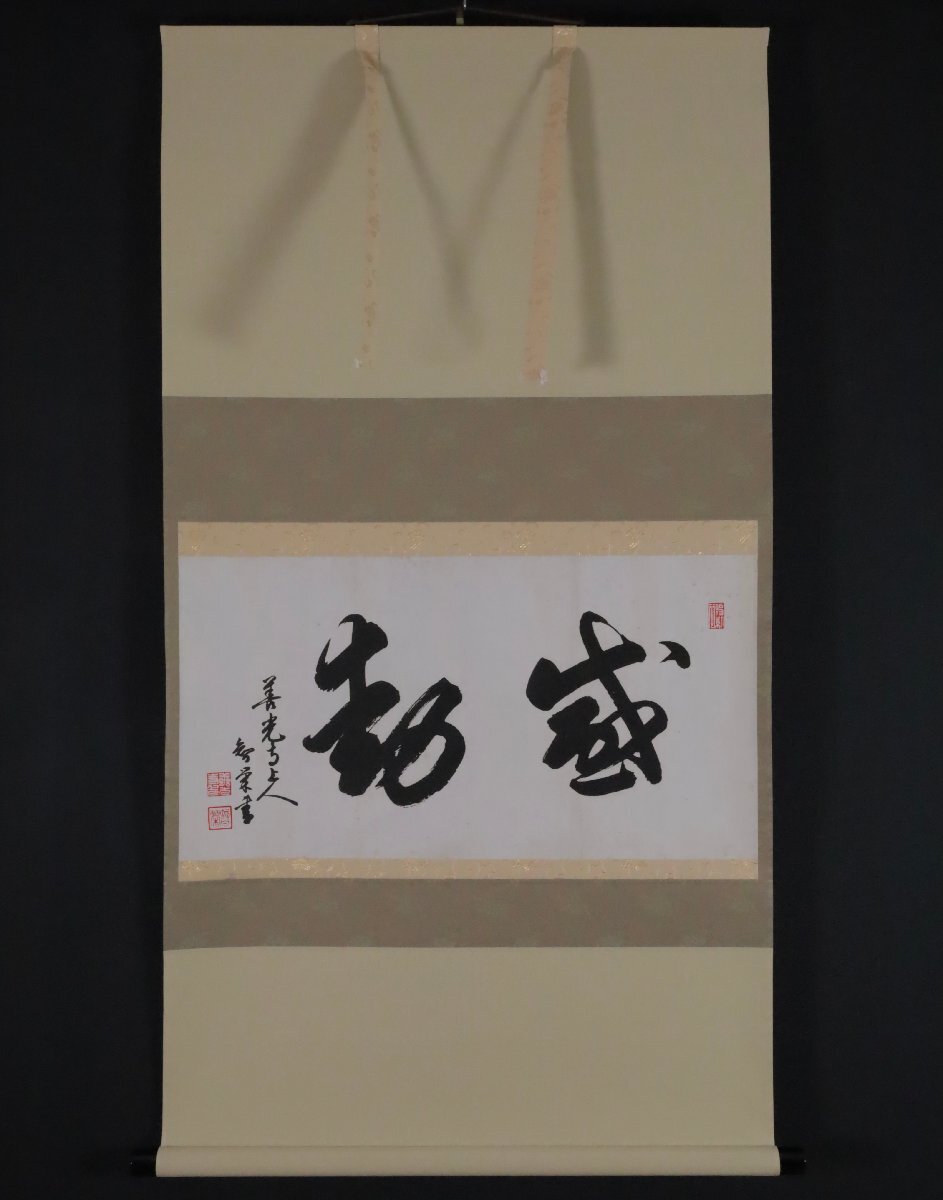 感動
善光寺上人
智栄書